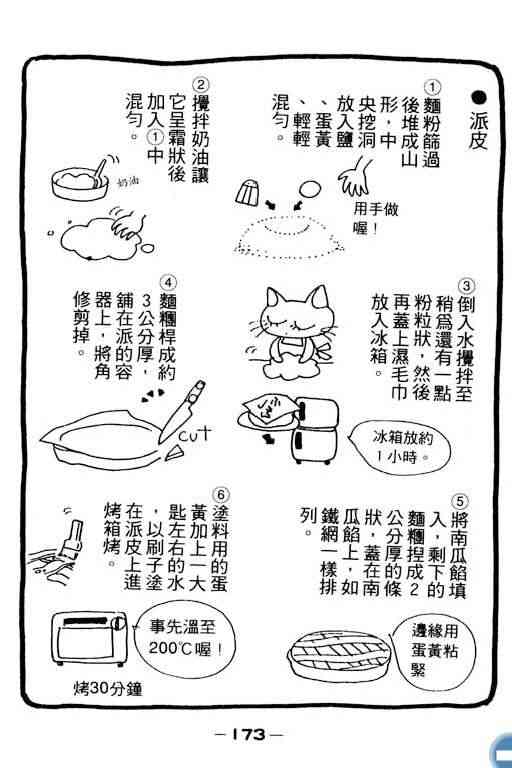 ●派皮
①麵粉篩過
後堆成山
形，中
央挖洞
放入鹽
、蛋黃
、輕輕
混勻。
用手做
喔！
②攪拌奶油讓
它呈霜狀後
加入①中
混勻。
奶油
③倒入水攪拌至
稍為還有一點
粉粒狀，然後
再蓋上濕毛巾
放入冰箱。
冰箱放約
1小時。
④麵糰桿成約
3公分厚，
舖在派的容
器上，將角
修剪掉。
cut
⑤將南瓜餡填
入，剩下的
麵糰捏成2
公分厚的條
狀，蓋在南
瓜餡上，如
鐵網一樣排
列。
邊緣用
蛋黃粘
緊
⑥塗料用的蛋
黃加上一大
匙左右的水
，以刷子塗
在派皮上進
烤箱烤。
事先溫至
200℃喔！
烤30分鐘
－173－